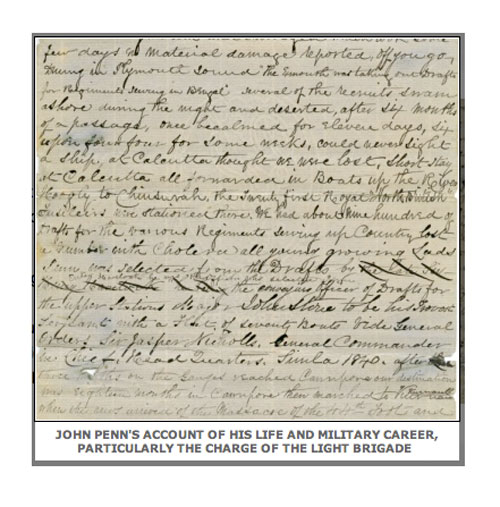 few days no Material damage reported, off you go,
being in Plymouth Sound "the Exmouth was taking out Drafts
for Regiments serving in Bengal" several of the recruits swam
ashore during the night and deserted, after six months
of a passage, once becalmed for eleven days, six
upon four four for some weeks, could never sight
a ship, at Calcutta thought we were lost, Short stay
at Calcutta all forwarded in Boats up the River
Hoogly to Chinsurah, the Twenty first Royal North British
Fusiliers were stationed there, We had about Nine hundred of
Drafts for the various Regiments serving up Country lost
a Number with Cholera all young growing Lads
I was selected from the Drafts by
the conveying Officer of Drafts for
the upper Stations Major John to be his Provost
Sergeant with a Fleet of seventy Boats Vide General
Orders Sir Jasper Nicholls, General Commander
in Chief, Head Quarters, Simla 1840. after
three months on the Ganges reached Cawnpore our destination
was eighteen months in Cawnpore then marched to
when the news arrived of the Massacre of the 44th Foot and
JOHN PENN'S ACCOUNT OF HIS LIFE AND MILITARY CAREER,
PARTICULARLY THE CHARGE OF THE LIGHT BRIGADE